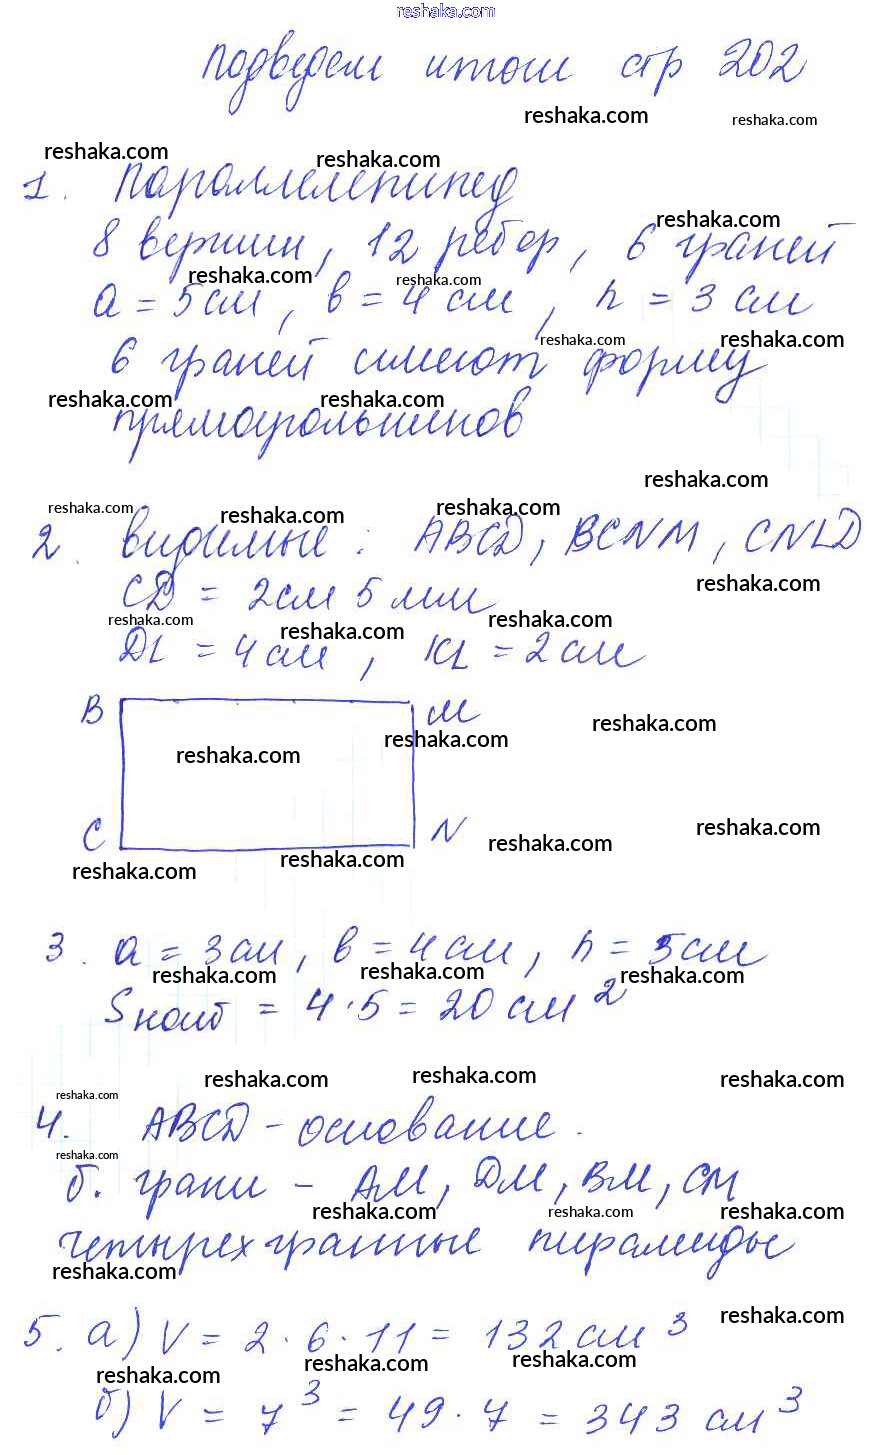 reshaka.com
Подведем итоги стр 202
reshaka.com reshaka.com
reshaka.com reshaka.com
1. Параллелепипед
reshaka.com
8 вершин, 12 ребер, 6 граней
reshaka.com reshaka.com
a = 5 см, b = 4 см, h = 3 см
reshaka.com reshaka.com
6 граней имеют форму
reshaka.com reshaka.com
прямоугольников
reshaka.com
reshaka.com reshaka.com reshaka.com
2. видимые: ABCD, BCNM, CNLD
reshaka.com
CD = 2 см 5 мм
reshaka.com reshaka.com reshaka.com
DL = 4 см, KL = 2 см
B M
reshaka.com reshaka.com reshaka.com
C N
reshaka.com reshaka.com
reshaka.com reshaka.com
3. a = 3 см, b = 4 см, h = 5 см
reshaka.com reshaka.com reshaka.com
Sнаиб = 4 · 5 = 20 см²
reshaka.com reshaka.com reshaka.com
reshaka.com
4. ABCD - основание.
reshaka.com
б. грани - AM, DM, BM, CM
reshaka.com reshaka.com reshaka.com
четырехгранные пирамиды
reshaka.com
reshaka.com
5. а) V = 2 · 6 · 11 = 132 см³
reshaka.com reshaka.com reshaka.com
б) V = 7³ = 49 · 7 = 343 см³